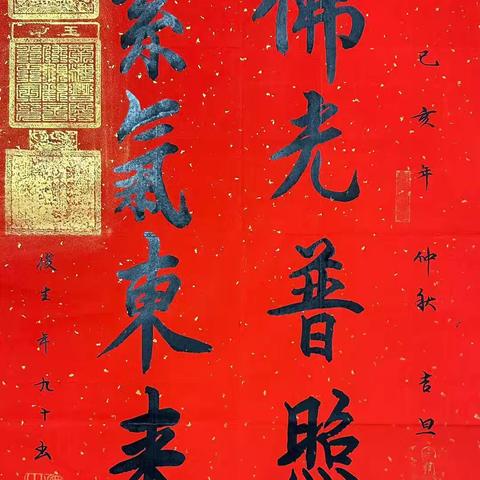 己亥年 仲秋 吉旦
佛光普照
紫氣東来
俊生 年九十书